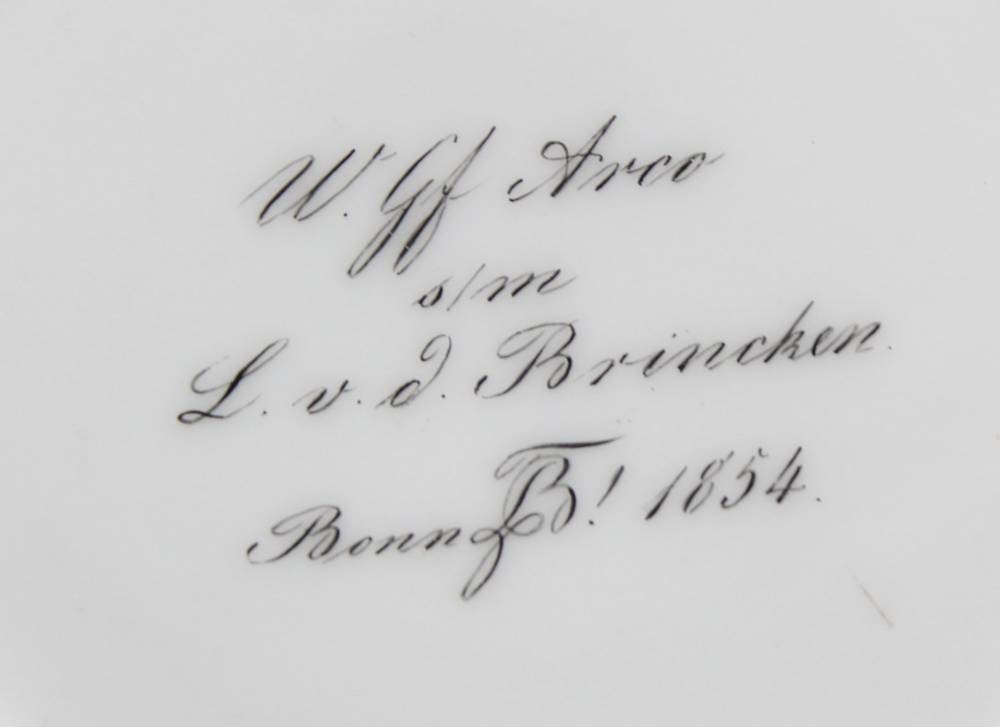 W. Gf Arco
s/m
L. v. d. Brincken.
Bonn ! 1854.